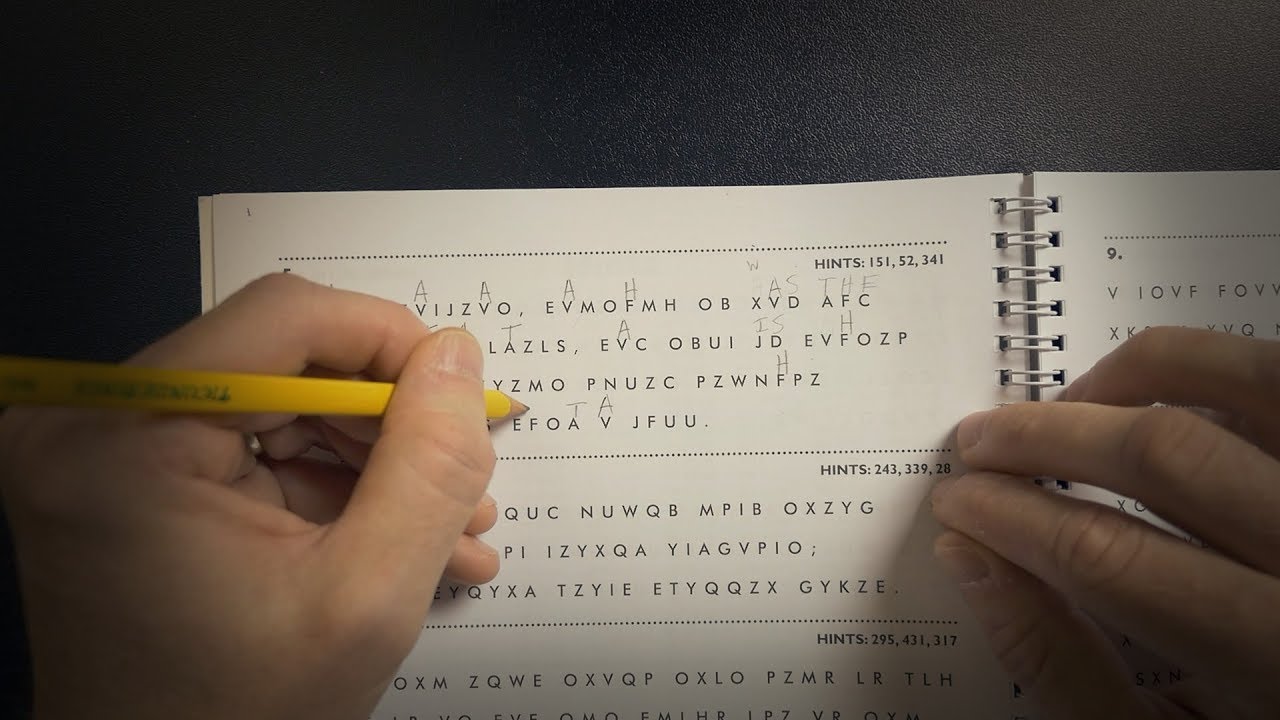 HINTS: 151, 52, 341
W
A A A H AS THE
VIJZVO, EVMOFMH OB XVD AFC
T A IS H
LAZLS, EVC OBUI JD EVFOZP
H
YZMO PNUZC PZWNFPZ
T A
EFOA V JFUU.
HINTS: 243, 339, 28
QUC NUWQB MPIB OXZYG
PI IZYXQA YIAGVPIO;
EYQYXA TZYIE ETYQQZX GYKZE.
HINTS: 295, 431, 317
OXM ZQWE OXVQP OXLO PZMR LR TLH
9.
V IOVF FOVW
SXN
TICONDEROGA